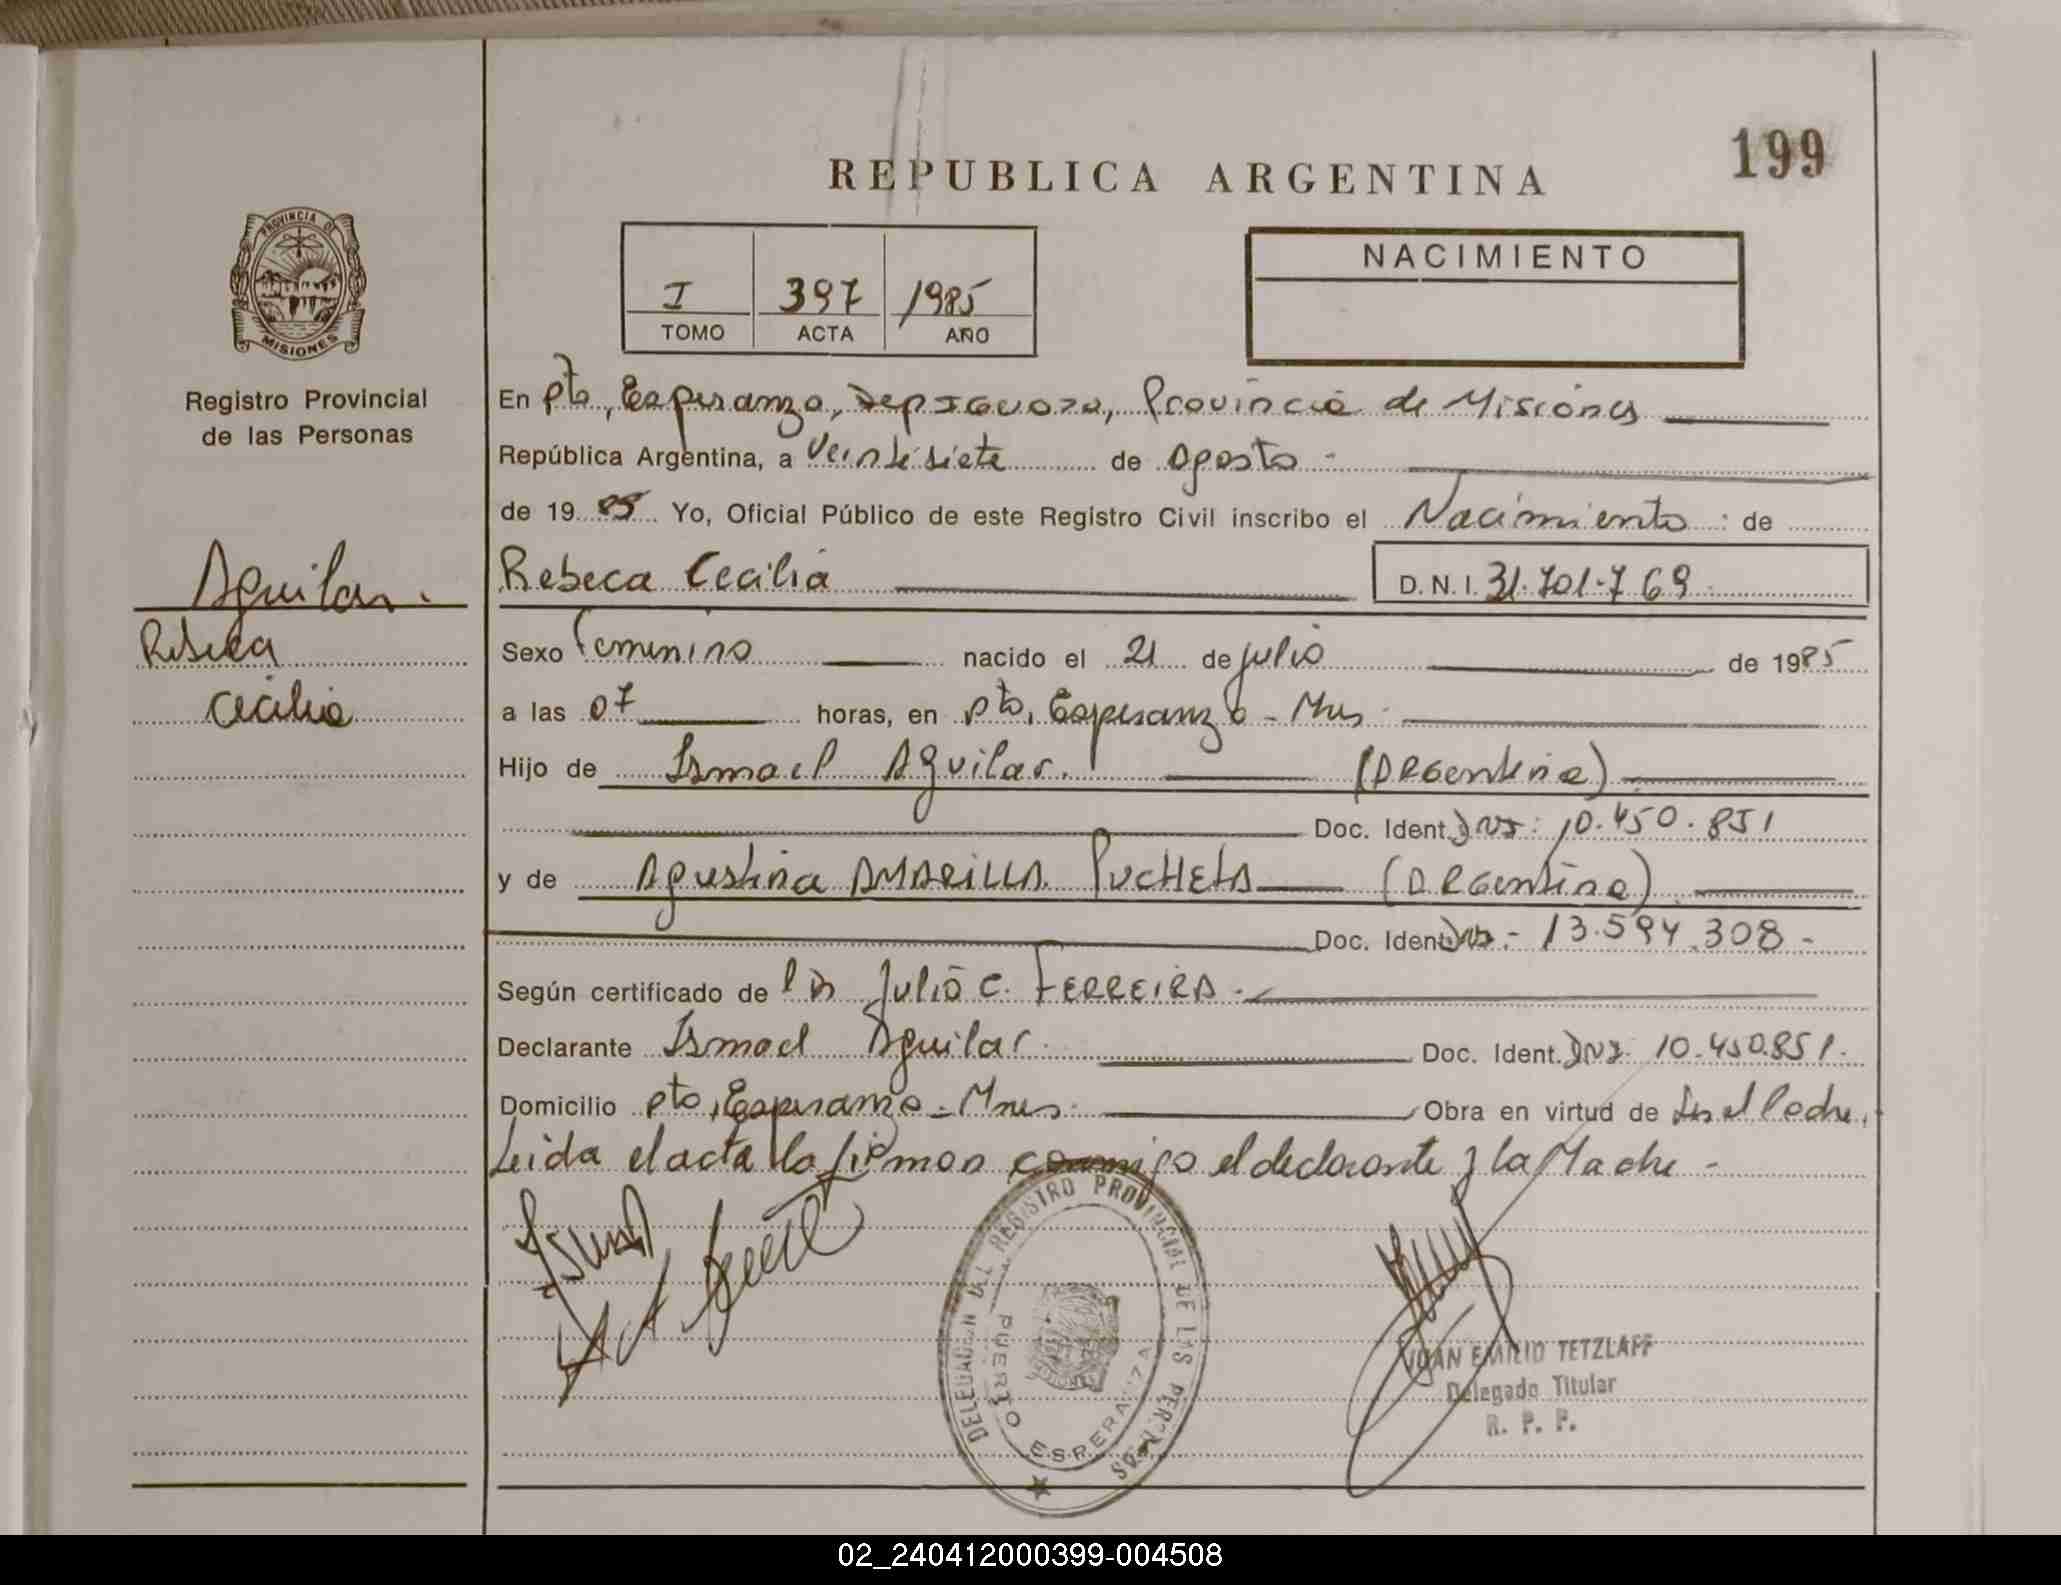 199
REPUBLICA ARGENTINA
PROVINCIA DE
MISIONES
Registro Provincial
de las Personas
I 397 1985
TOMO ACTA AÑO
NACIMIENTO
En Pto, Esperanza, Dep Iguazu, Provincia de Misiones
República Argentina, a veintisiete de agosto -
de 19 85 Yo, Oficial Público de este Registro Civil inscribo el Nacimiento : de
Rebeca Cecilia D.N.I. 31.701.769
Aguilar.
Rebeca
Cecilia
Sexo femenino nacido el 21 de julio de 1985
a las 07 horas, en Pto, Esperanza - Mnes
Hijo de Ismael Aguilar. (Argentina)
Doc. Ident. DNI: 10.450.851
y de Agustina AMARILLA PUCHETA (Argentina)
Doc. Ident. DNI - 13.594.308 -
Según certificado de Julio C. FERREIRA -
Declarante Ismael Aguilar Doc. Ident. DNI: 10.450.851.
Domicilio Pto, Esperanza - Mnes Obra en virtud de Ser el Padre,
Leida el acta la firman conmigo el declarante y la Madre -
DELEGACION DEL REGISTRO PROVINCIAL DE LAS PERSONAS
PUERTO ESPERANZA
JUAN EMILIO TETZLAFF
Delegado Titular
R. P. P.
02_240412000399-004508